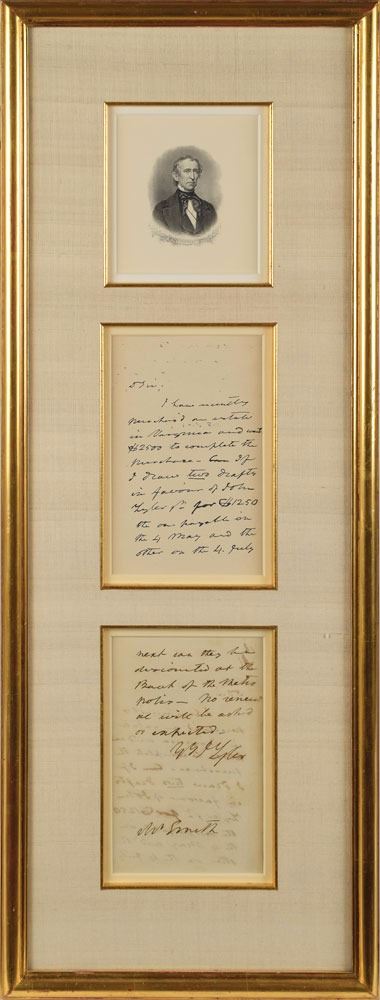 D Sir;
I have recently
purchas'd an estate
in Virginia and want
$2500 to complete the
purchase - Can If
I draw two drafts
in favour of John
Tyler Jr. for $1250
the one payable on
the 4 May and the
other on the 4. July
next can they be
discounted at the
Bank of the Metro
polis - No renew
al will be asked
or expected -
J. Tyler
Mr Smith